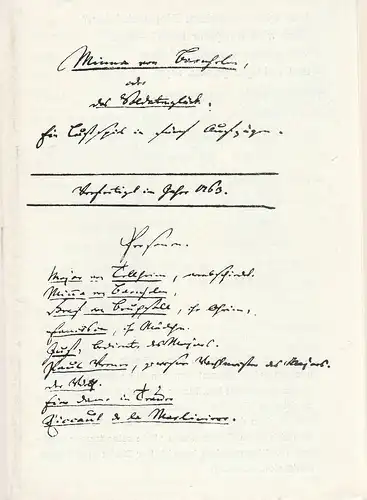 Minna von Barnhelm,
oder
das Soldatenglück.
Ein Lustspiel in fünf Aufzügen.
Verfertiget im Jahre 1763.
Personen.
Major von Tellheim, verabschiedet.
Minna von Barnhelm.
Graf von Bruchsall, ihr Oheim.
Franciska, ihr Mädchen.
Just, Bedienter des Majors.
Paul Werner, gewesener Wachtmeister des Majors.
Der Wirth.
Eine Dame in Trauer.
Riccaut de la Marliniere.